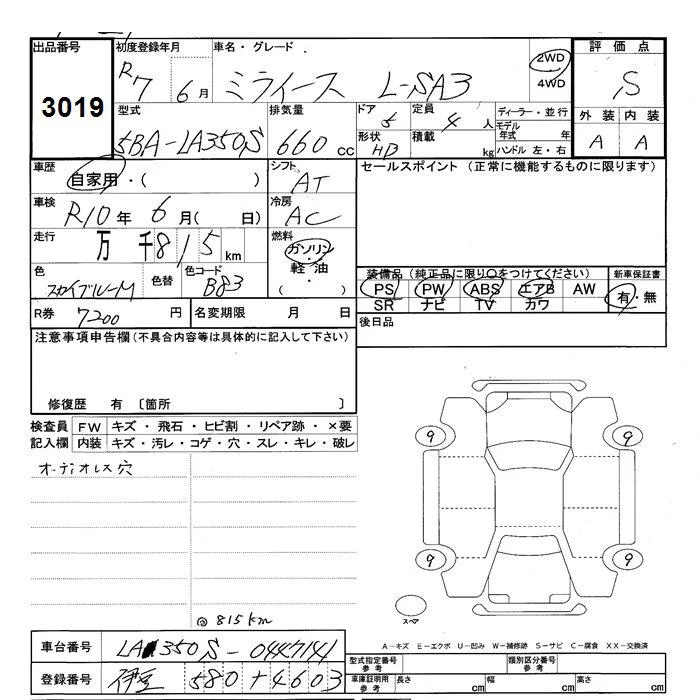 出品番号 初度登録年月 車名・グレード 評価点
3019 R7 6月 ミライース L-SA3 2WD 4WD S
型式 排気量 ドア 定員 ディーラー・並行 外装 内装
5BA-LA350S 660cc 5 4人 モデル年式 年 A A
形状 HB 積載 kg ハンドル 左・右
車歴 シフト セールスポイント (正常に機能するものに限ります)
自家用・( ) AT
車検 冷房
R10年6月( 日) AC
走行 燃料
万千815km ガソリン・軽油・( )
色 色替 色コード 装備品(純正品に限り○をつけてください) 新車保証書
スカイブルーM B83 PS PW ABS エアB AW 有・無
SR ナビ TV カワ
R券 7200円 名変期限 月 日 後日品
注意事項申告欄(不具合内容等は具体的に記入して下さい)
修復歴 有 〔箇所 〕
検査員 FW キズ・飛石・ヒビ割・リペア跡・×要
記入欄 内装 キズ・汚レ・コゲ・穴・スレ・キレ・破レ
オーディオレス穴
9 9
9 9
スペア
@815km
A-キズ E-エクボ U-凹み W-補修跡 S-サビ C-腐食 XX-交換済
車台番号 LA350S-0447141
型式指定番号 参考 類別区分番号 参考
登録番号 伊豆 580 4603
車庫証明用 参考 長さ cm 幅 cm 高さ cm